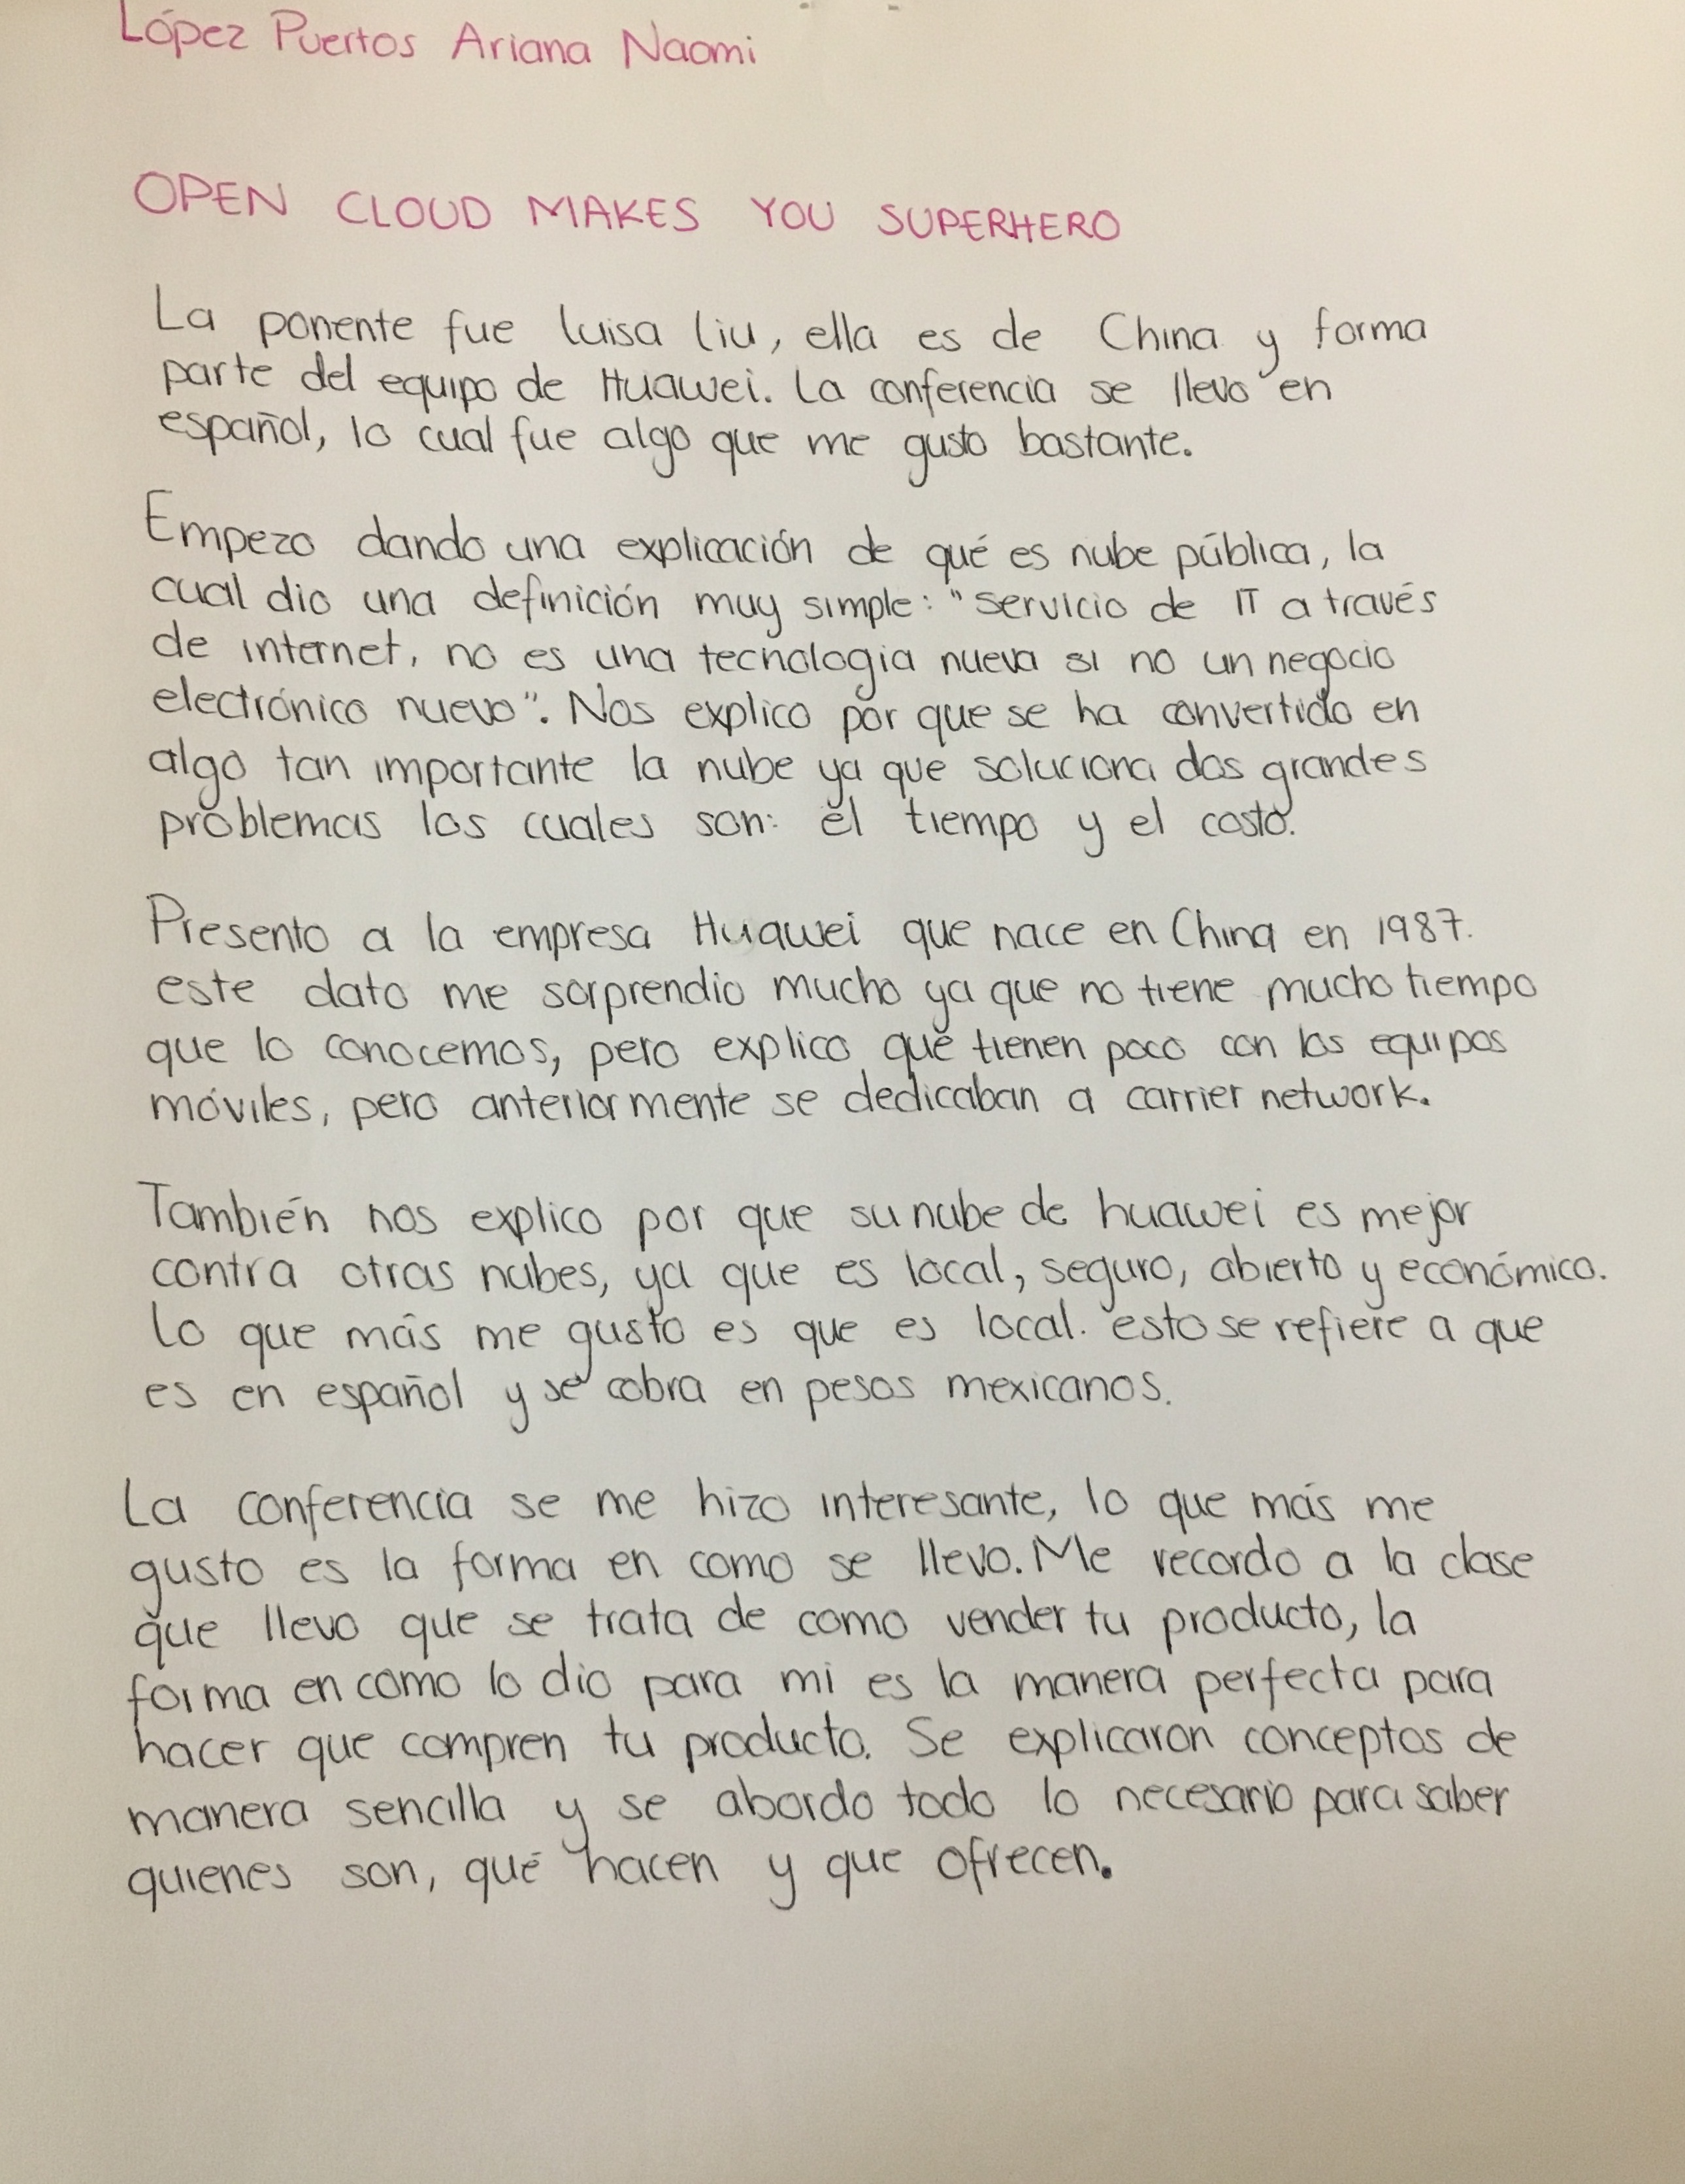 López Puertos Ariana Naomi
OPEN CLOUD MAKES YOU SUPERHERO
La ponente fue luisa liu, ella es de China y forma
parte del equipo de Huawei. La conferencia se llevo en
español, lo cual fue algo que me gusto bastante.
Empezo dando una explicación de qué es nube pública, la
cual dio una definición muy simple: "servicio de IT a través
de internet, no es una tecnologia nueva si no un negocio
electrónico nuevo". Nos explico por que se ha convertido en
algo tan importante la nube ya que soluciona dos grandes
problemas los cuales son: el tiempo y el costo.
Presento a la empresa Huawei que nace en China en 1987.
este dato me sorprendio mucho ya que no tiene mucho tiempo
que lo conocemos, pero explico que tienen poco con los equipos
móviles, pero anteriormente se dedicaban a carrier network.
También nos explico por que su nube de huawei es mejor
contra otras nubes, ya que es local, seguro, abierto y económico.
Lo que más me gusto es que es local. esto se refiere a que
es en español y se cobra en pesos mexicanos.
La conferencia se me hizo interesante, lo que más me
gusto es la forma en como se llevo. Me recordo a la clase
que llevo que se trata de como vender tu producto, la
forma en como lo dio para mi es la manera perfecta para
hacer que compren tu producto. Se explicaron conceptos de
manera sencilla y se abordo todo lo necesario para saber
quienes son, qué hacen y que ofrecen.